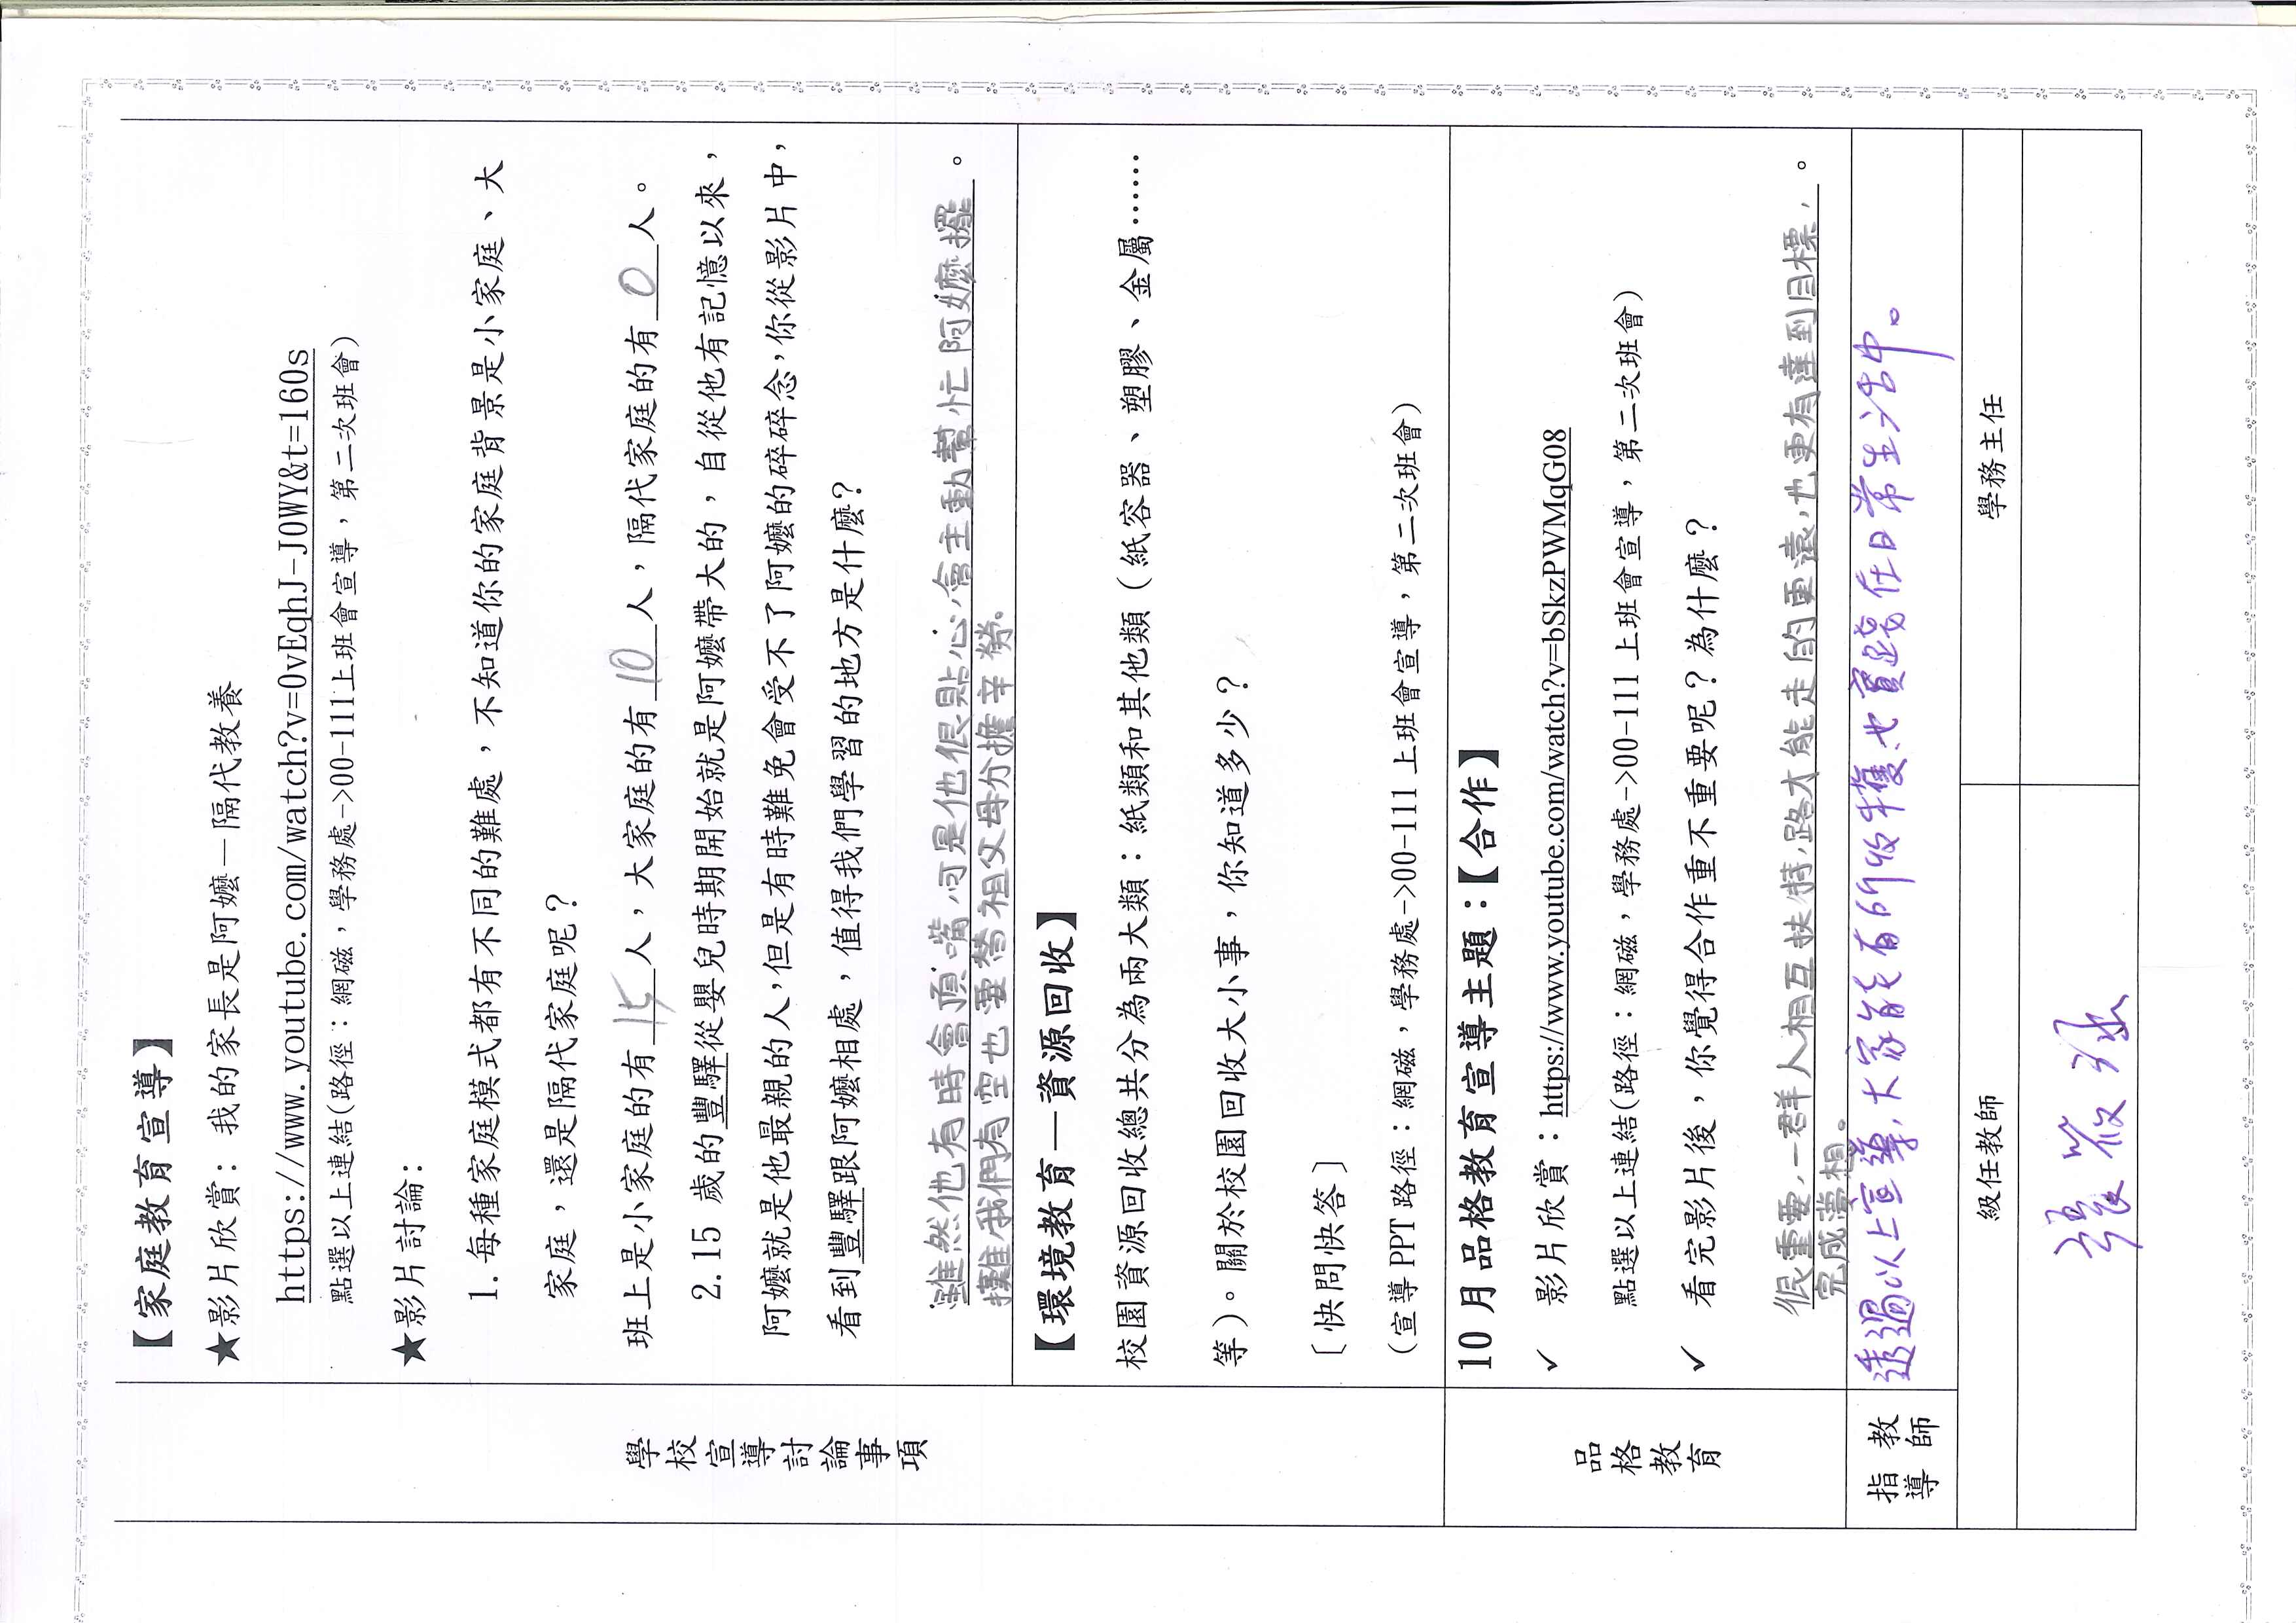 【家庭教育宣導】
★影片欣賞：我的家長是阿嬤—隔代教養
https://www.youtube.com/watch?v=0vEqhJ-JOWY&t=160s
點選以上連結(路徑：網磁，學務處->00-111上班會宣導，第二次班會)
★影片討論：
1.每種家庭模式都有不同的難處，不知道你的家庭背景是小家庭、大
家庭，還是隔代家庭呢？
班上是小家庭的有 15 人，大家庭的有 10 人，隔代家庭的有 0 人。
2.15 歲的豐驛從嬰兒時期開始就是阿嬤帶大的，自從他有記憶以來，
阿嬤就是他最親的人，但是有時難免會受不了阿嬤的碎碎念，你從影片中，
看到豐驛跟阿嬤相處，值得我們學習的地方是什麼？
雖然他有時會頂嘴，可是他很貼心，會主動幫忙阿嬤擺。
攤，我們有空也要幫祖父母分擔辛勞。
學校宣導討論事項
【環境教育—資源回收】
校園資源回收總共分為兩大類：紙類和其他類（紙容器、塑膠、金屬……
等）。關於校園回收大小事，你知道多少？
〔快問快答〕
(宣導 PPT 路徑：網磁，學務處->00-111 上班會宣導，第二次班會)
10 月品格教育宣導主題：【合作】
✓ 影片欣賞：https://www.youtube.com/watch?v=bSkzPWMqG08
點選以上連結(路徑：網磁，學務處->00-111 上班會宣導，第二次班會)
✓ 看完影片後，你覺得合作重不重要呢？為什麼？
很重要，一群人相互扶持，路才能走的更遠，也更有達到目標，。
完成夢想。
品格教育
指導教師
透過以上宣導，大家能有所收穫，也實踐在日常生活中。
級任教師
學務主任
張